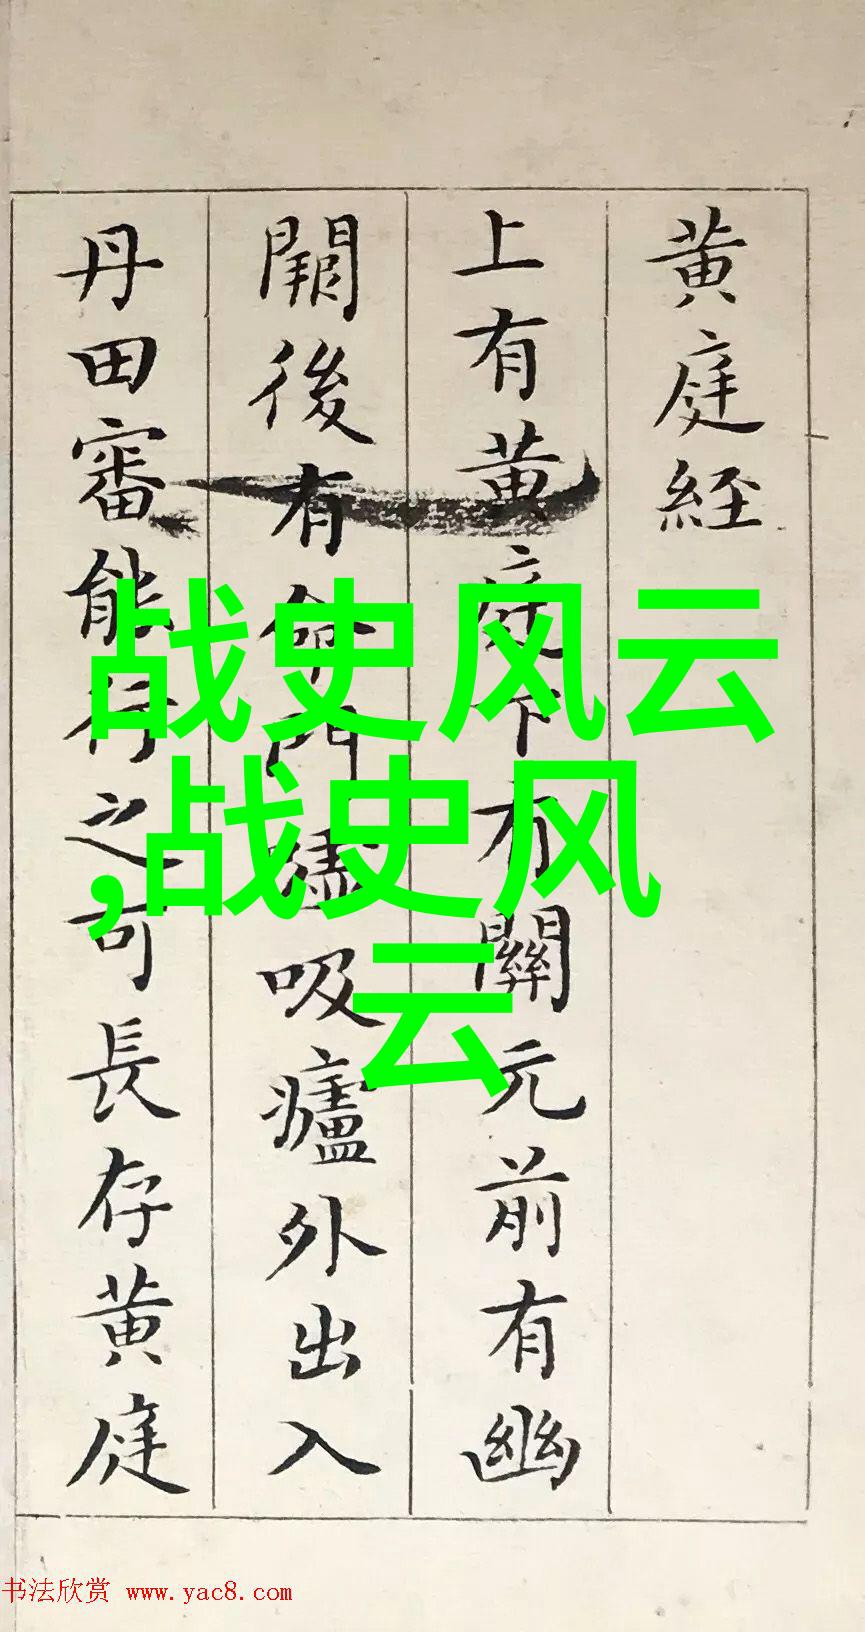 黄庭经
上有黄庭下有關元前有幽
闕後有命門嘘吸廬外出入
丹田審能行之可長存黄庭
战史风云
,战史风
云
书法欣赏 www.yac8.com